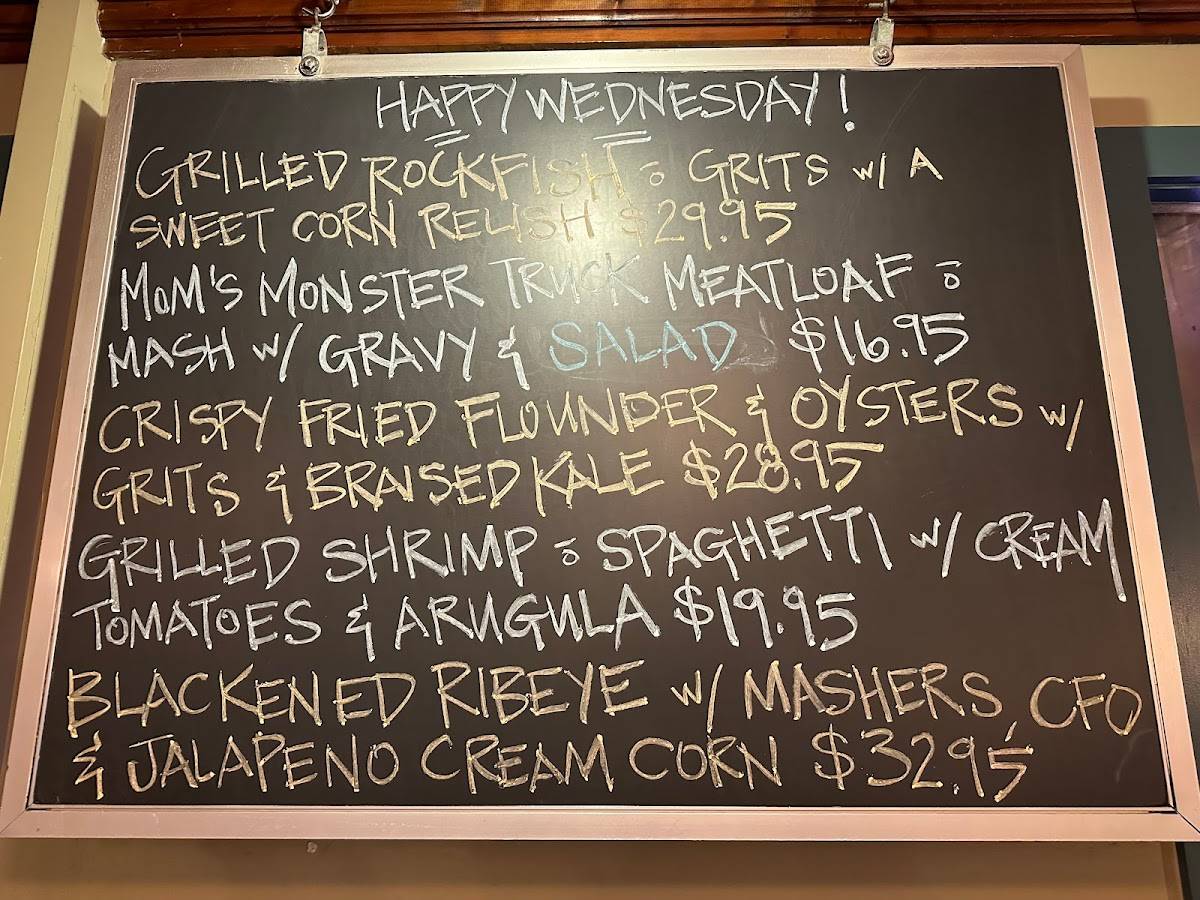 HAPPY WEDNESDAY!
GRILLED ROCKFISH ō GRITS w/ A
SWEET CORN RELISH $29.95
MOM'S MONSTER TRUCK MEATLOAF ō
MASH w/ GRAVY & SALAD $16.95
CRISPY FRIED FLOUNDER & OYSTERS w/
GRITS & BRAISED KALE $28.95
GRILLED SHRIMP ō SPAGHETTI w/ CREAM
TOMATOES & ARUGULA $19.95
BLACKENED RIBEYE w/ MASHERS, CFO
& JALAPENO CREAM CORN $32.95